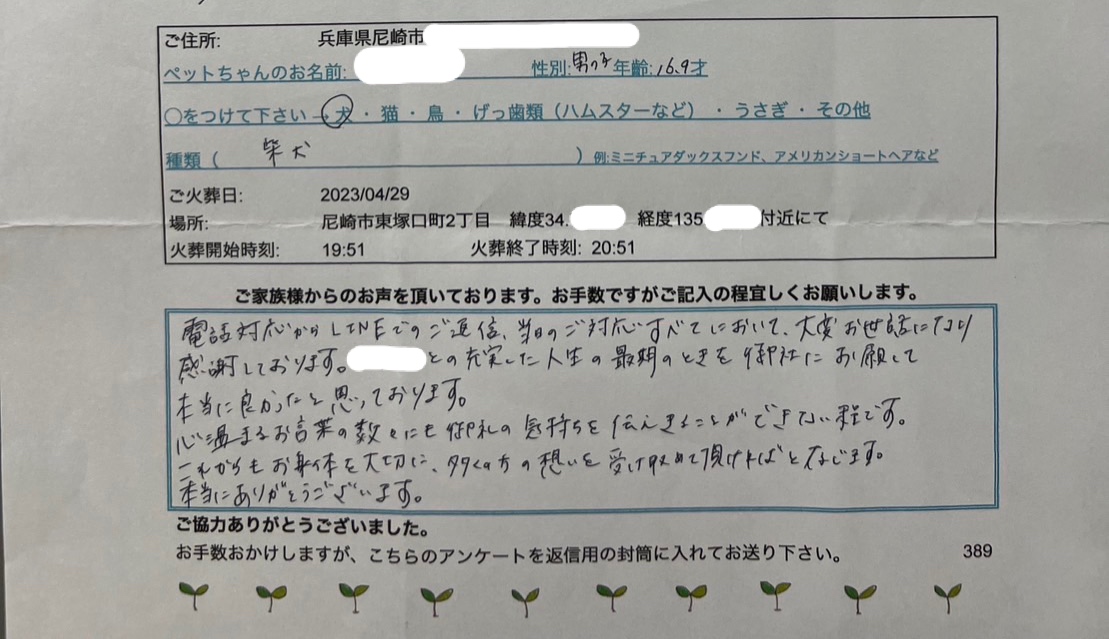 ご住所: 兵庫県尼崎市
ペットちゃんのお名前: 性別:男の子 年齢:16.9才
○をつけて下さい→犬・猫・鳥・げっ歯類（ハムスターなど）・うさぎ・その他
種類（ 柴犬 ）例:ミニチュアダックスフンド、アメリカンショートヘアなど
ご火葬日: 2023/04/29
場所: 尼崎市東塚口町2丁目 緯度34. 経度135 付近にて
火葬開始時刻: 19:51 火葬終了時刻: 20:51
ご家族様からのお声を頂いております。お手数ですがご記入の程宜しくお願いします。
電話対応からLINEでのご返信、当日のご対応すべてにおいて、大変お世話になり
感謝しております。 との充実した人生の最期のときを御社にお願して
本当に良かったと思っております。
心温まるお言葉の数々にも御礼の気持ちを伝えきることができない程です。
これからもお身体を大切に、多くの方の想いを受け収めて頂ければと存じます。
本当にありがとうございます。
ご協力ありがとうございました。
お手数おかけしますが、こちらのアンケートを返信用の封筒に入れてお送り下さい。 389